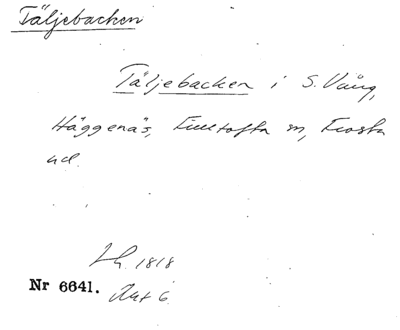 Täljebacken
Täljebacken i S. Vång,
Häggenäs, Fulltofta sn, Frosta
hd.
Lh. 1818
Nr 6641. Akt 6